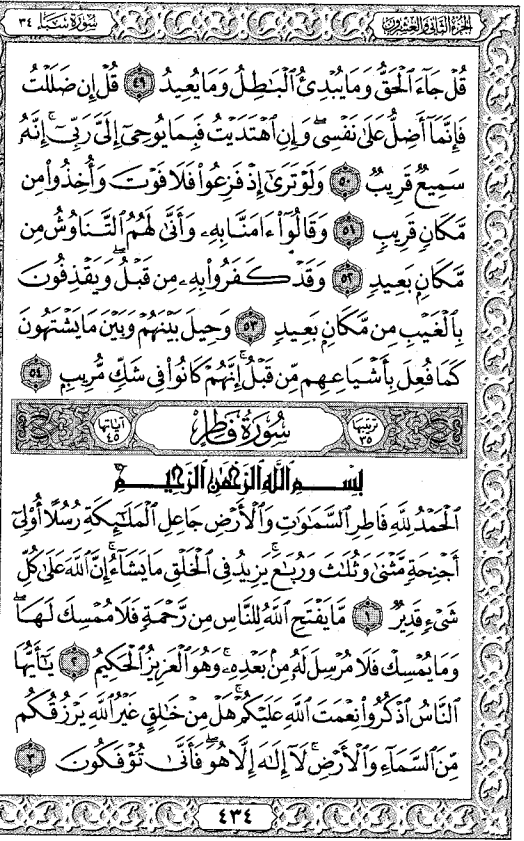 الجزء الثاني والعشرون
سورة سبأ ٣٤
قُلْ جَآءَ ٱلْحَقُّ وَمَا يُبْدِئُ ٱلْبَٰطِلُ وَمَا يُعِيدُ ٤٩ قُلْ إِن ضَلَلْتُ
فَإِنَّمَآ أَضِلُّ عَلَىٰ نَفْسِى ۖ وَإِنِ ٱهْتَدَيْتُ فَبِمَا يُوحِىٓ إِلَىَّ رَبِّىٓ ۚ إِنَّهُۥ
سَمِيعٌ قَرِيبٌ ٥٠ وَلَوْ تَرَىٰٓ إِذْ فَزِعُوا۟ فَلَا فَوْتَ وَأُخِذُوا۟ مِن
مَّكَانٍ قَرِيبٍ ٥١ وَقَالُوٓا۟ ءَامَنَّا بِهِۦ وَأَنَّىٰ لَهُمُ ٱلتَّنَاوُشُ مِن
مَّكَانٍۭ بَعِيدٍ ٥٢ وَقَدْ كَفَرُوا۟ بِهِۦ مِن قَبْلُ ۖ وَيَقْذِفُونَ
بِٱلْغَيْبِ مِن مَّكَانٍۭ بَعِيدٍ ٥٣ وَحِيلَ بَيْنَهُمْ وَبَيْنَ مَا يَشْتَهُونَ
كَمَا فُعِلَ بِأَشْيَاعِهِم مِّن قَبْلُ ۚ إِنَّهُمْ كَانُوا۟ فِى شَكٍّ مُّرِيبٍۭ ٥٤
ترتيبها ٣٥ سورة فاطر آياتها ٤٥
بسم الله الرحمن الرحيم
ٱلْحَمْدُ لِلَّهِ فَاطِرِ ٱلسَّمَٰوَٰتِ وَٱلْأَرْضِ جَاعِلِ ٱلْمَلَٰٓئِكَةِ رُسُلًا أُو۟لِىٓ
أَجْنِحَةٍ مَّثْنَىٰ وَثُلَٰثَ وَرُبَٰعَ ۚ يَزِيدُ فِى ٱلْخَلْقِ مَا يَشَآءُ ۚ إِنَّ ٱللَّهَ عَلَىٰ كُلِّ
شَىْءٍ قَدِيرٌ ١ مَّا يَفْتَحِ ٱللَّهُ لِلنَّاسِ مِن رَّحْمَةٍ فَلَا مُمْسِكَ لَهَا ۖ
وَمَا يُمْسِكْ فَلَا مُرْسِلَ لَهُۥ مِنۢ بَعْدِهِۦ ۚ وَهُوَ ٱلْعَزِيزُ ٱلْحَكِيمُ ٢ يَٰٓأَيُّهَا
ٱلنَّاسُ ٱذْكُرُوا۟ نِعْمَتَ ٱللَّهِ عَلَيْكُمْ ۚ هَلْ مِنْ خَٰلِقٍ غَيْرُ ٱللَّهِ يَرْزُقُكُم
مِّنَ ٱلسَّمَآءِ وَٱلْأَرْضِ ۚ لَآ إِلَٰهَ إِلَّا هُوَ ۖ فَأَنَّىٰ تُؤْفَكُونَ ٣
٤٣٤